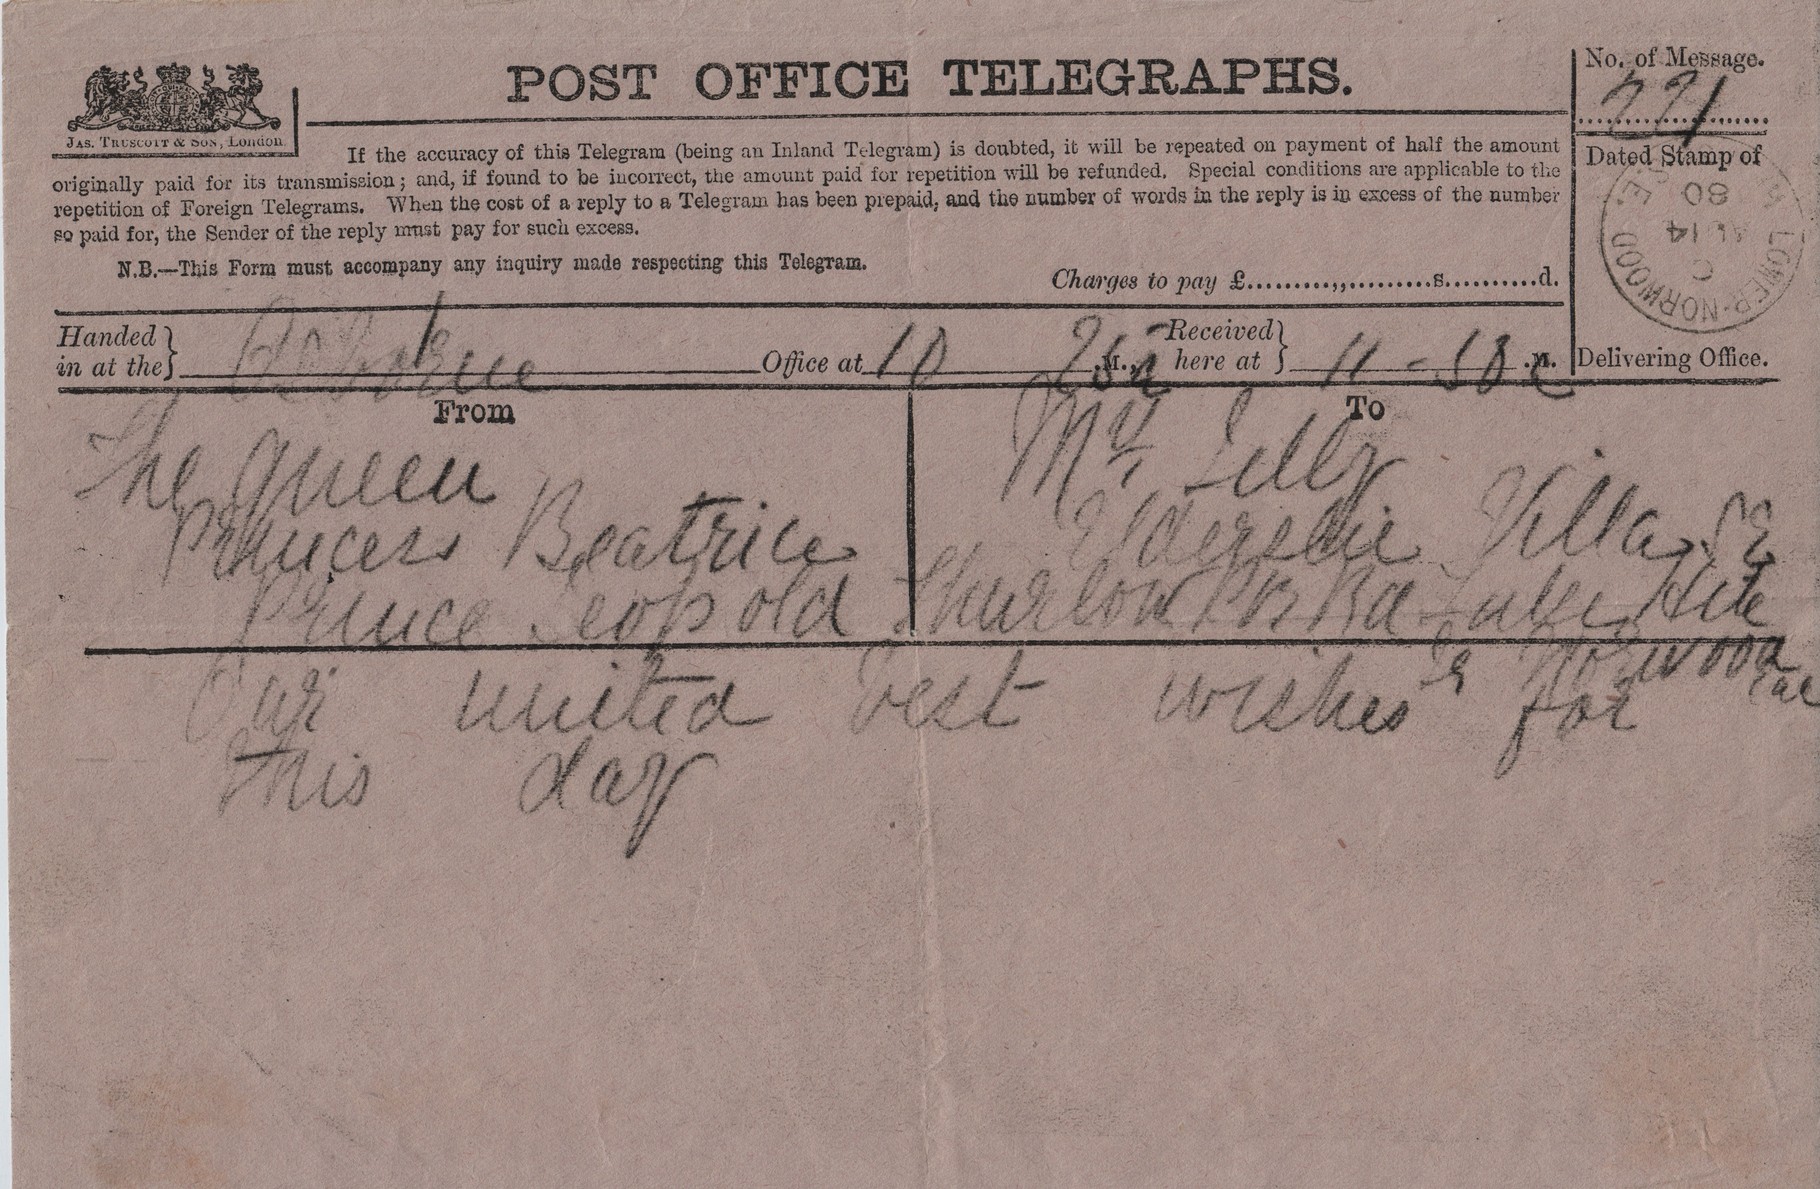 POST OFFICE TELEGRAPHS.
No. of Message.
JAS. TRUSCOTT & SON, London.
If the accuracy of this Telegram (being an Inland Telegram) is doubted, it will be repeated on payment of half the amount
originally paid for its transmission; and, if found to be incorrect, the amount paid for repetition will be refunded. Special conditions are applicable to the
repetition of Foreign Telegrams. When the cost of a reply to a Telegram has been prepaid, and the number of words in the reply is in excess of the number
so paid for, the Sender of the reply must pay for such excess.
N.B.—This Form must accompany any inquiry made respecting this Telegram.
Charges to pay £ s d.
Dated Stamp of
LOWER-NORWOOD S.E.
C
AU 14
80
Delivering Office.
Handed in at the } Osborne Office at 10 M., Received here at } 11-58 M.
From
The Queen
Princess Beatrice
Prince Leopold
To
Villa SE
Thurlow Pk Rd
Norwood
Our united best wishes for
this day